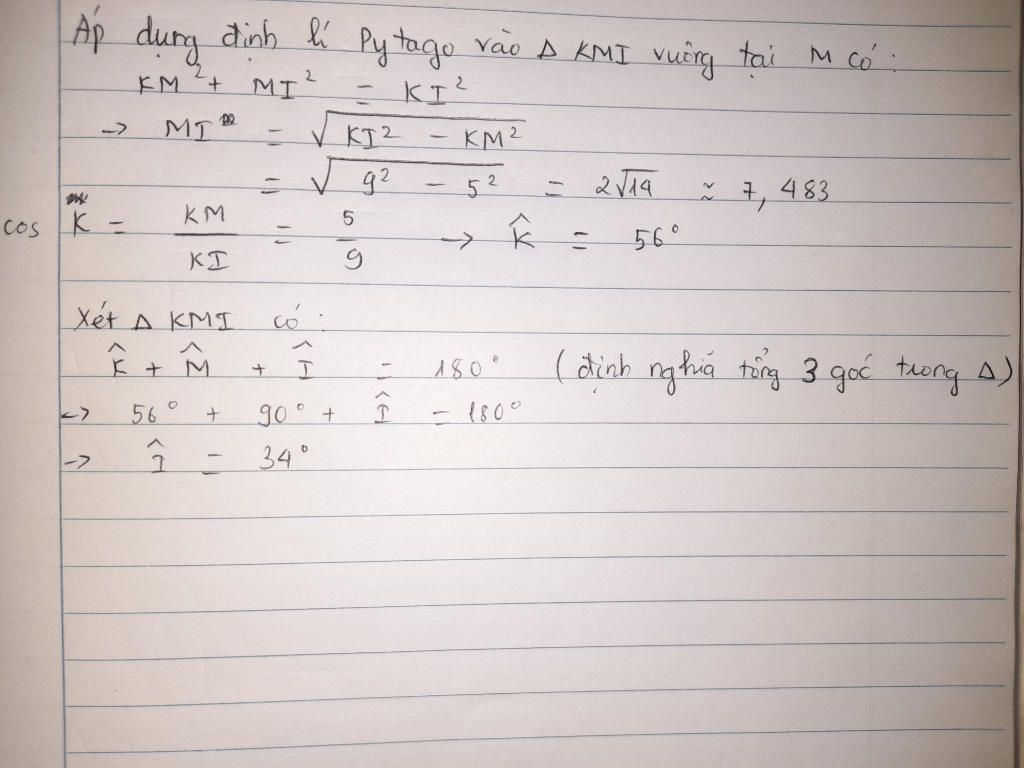 Áp dụng định lí Pytago vào Δ KMI vuông tại M có:
KM² + MI² = KI²
→ MI = √(KI² − KM²)
= √(9² − 5²) = 2√14 ≈ 7,483
cos K̂ = KM/KI = 5/9 → K̂ = 56°
Xét Δ KMI có:
K̂ + M̂ + Î = 180° (định nghĩa tổng 3 góc trong Δ)
<-> 56° + 90° + Î = 180°
→ Î = 34°